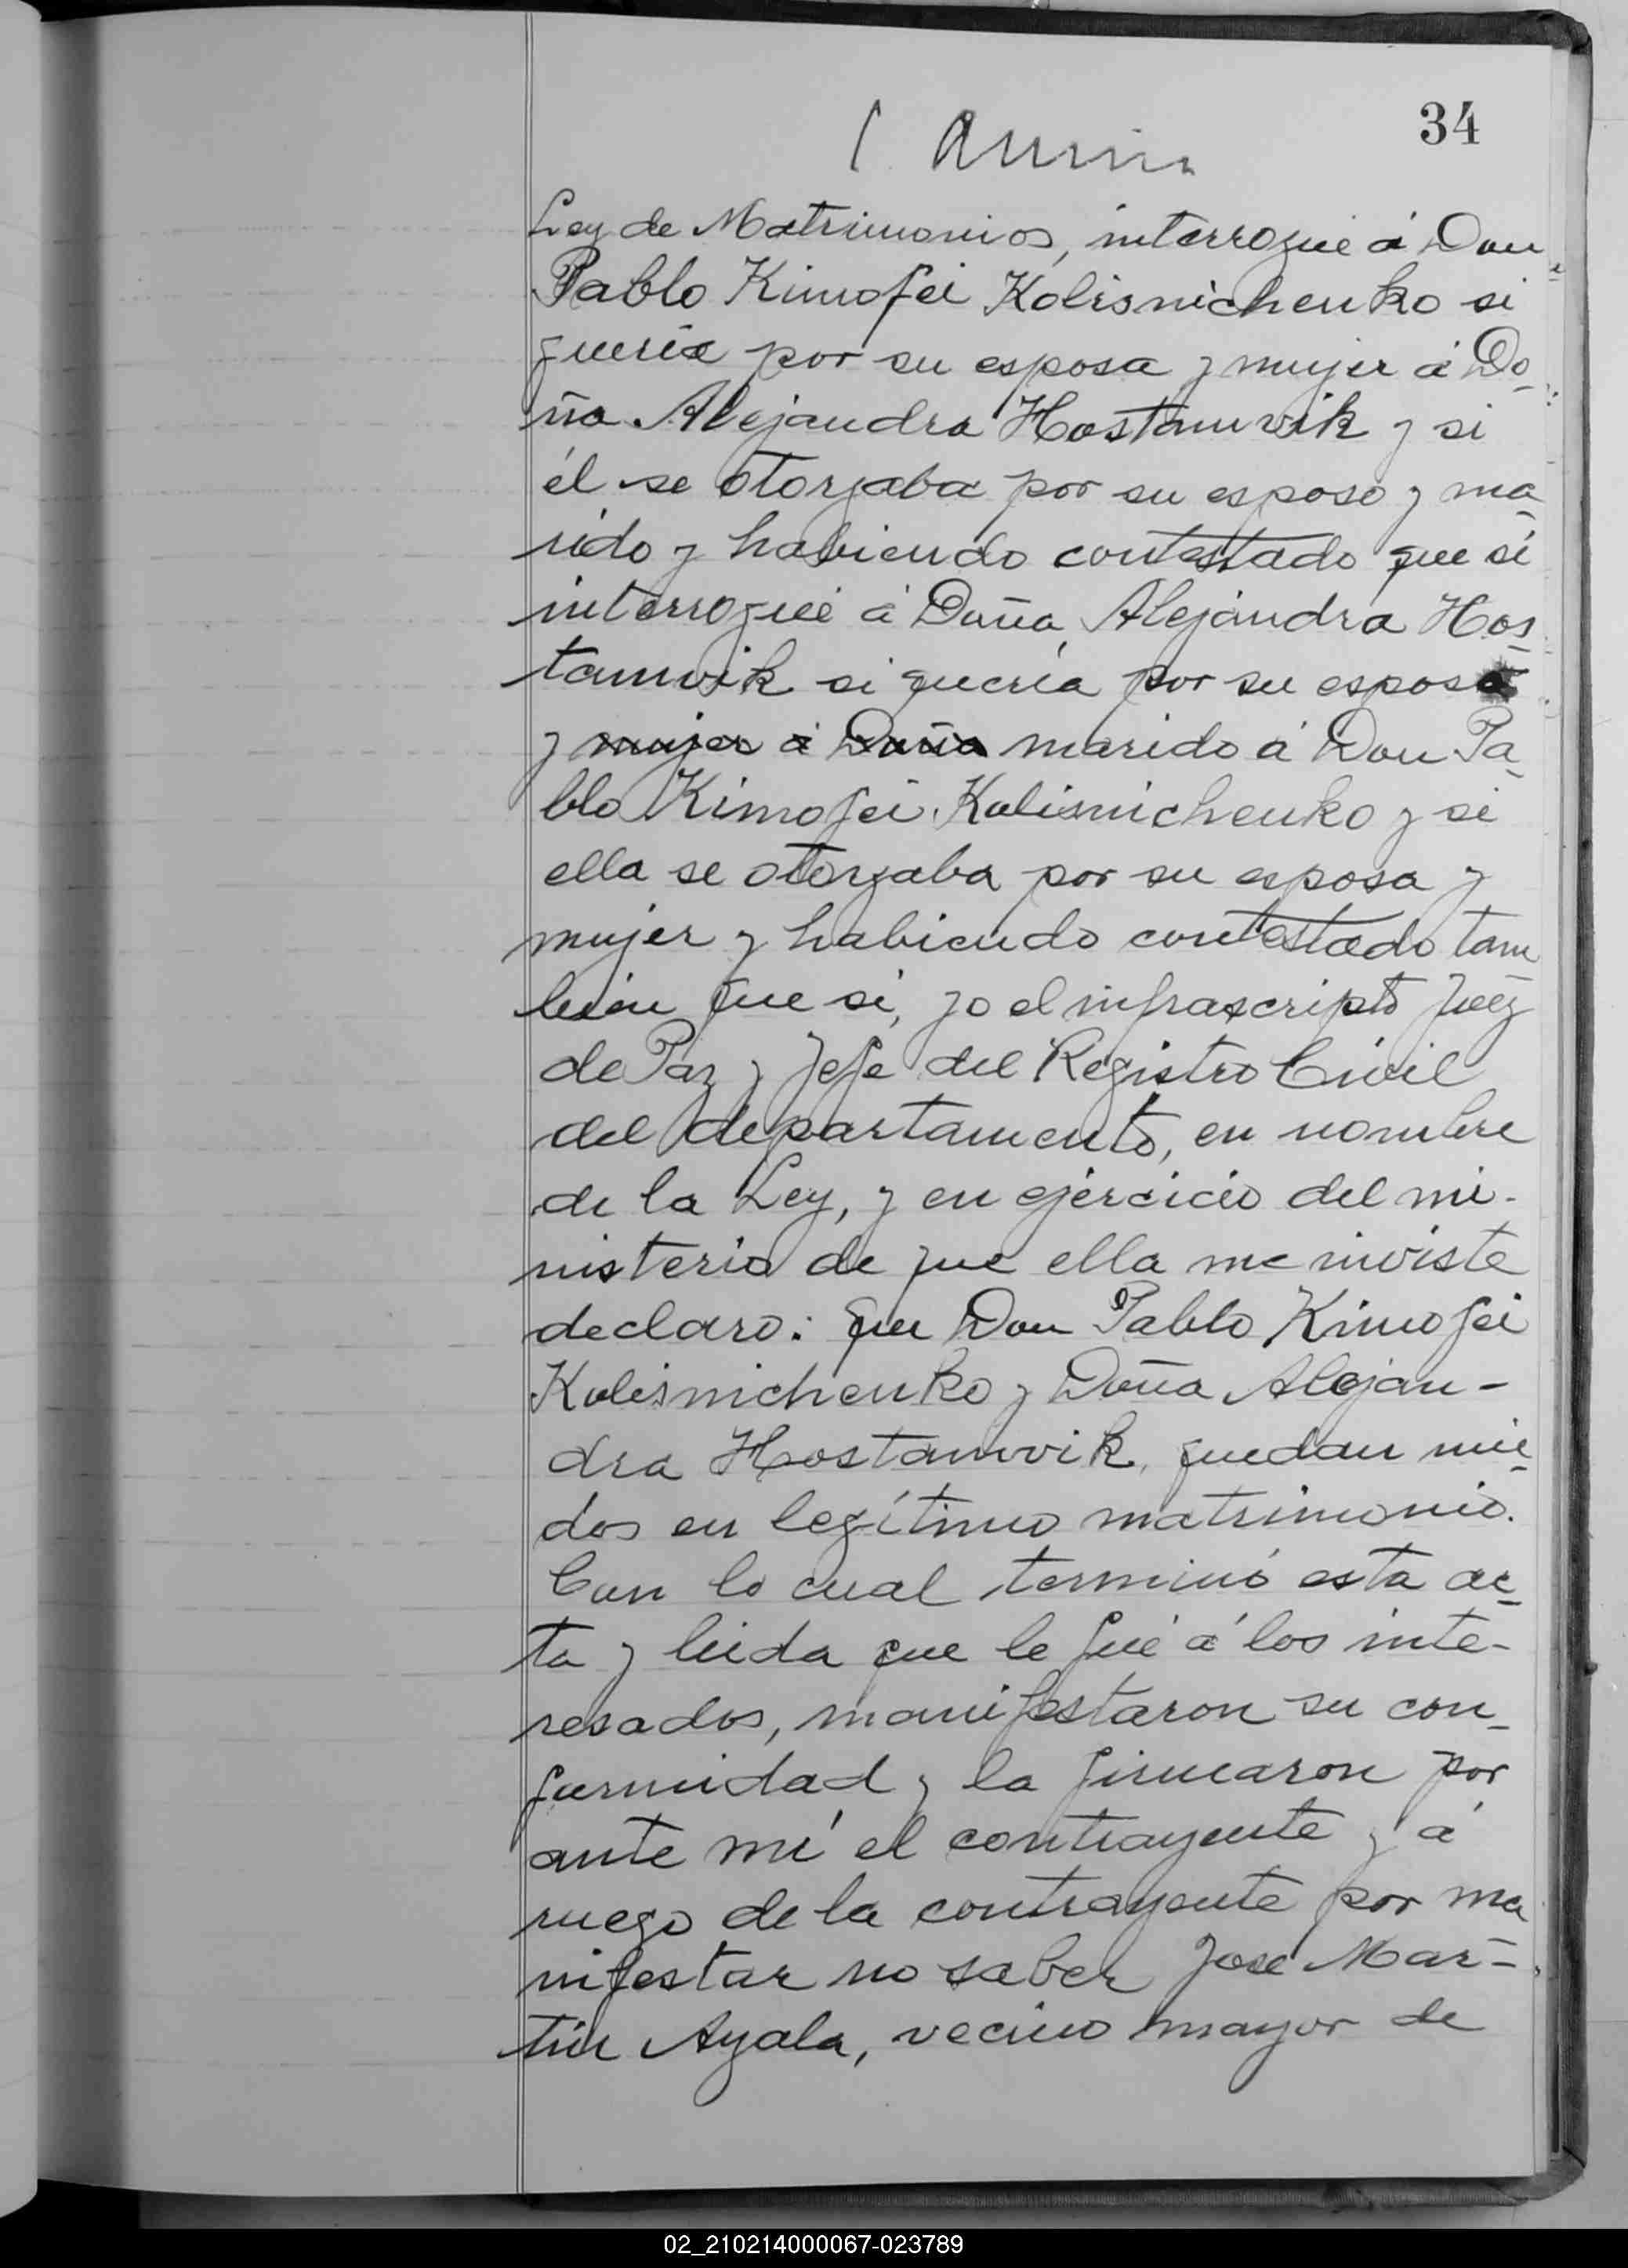 34
Ley de Matrimonios, interrogué á Don
Pablo Kimofei Kolisnichenko si
quería por su esposa y mujer á Do-
ña Alejandra Hostamvik y si
él se otorgaba por su esposo y ma-
rido y habiendo contestado que sí
interrogué á Doña Alejandra Hos-
tamvik si quería por su esposo
y mujer á Doña marido á Don Pa-
blo Kimofei Kolisnichenko y si
ella se otorgaba por su esposa y
mujer y habiendo contestado tam
bién que sí, yo el infrascripto Juez
de Paz y Jefe del Registro Civil
del departamento, en nombre
de la Ley, y en ejercicio del mi-
nisterio de que ella me inviste
declaro: que Don Pablo Kimofei
Kolisnichenko y Doña Alejan-
dra Hostamvik, quedan uni-
dos en legítimo matrimonio.
Con lo cual terminó esta ac-
ta y leida que le fué á los inte-
resados, manifestaron su con-
formidad y la firmaron por
ante mí el contrayente y á
ruego de la contrayente por ma
nifestar no saber José Mar-
tín Ayala, vecino mayor de
02_210214000067-023789